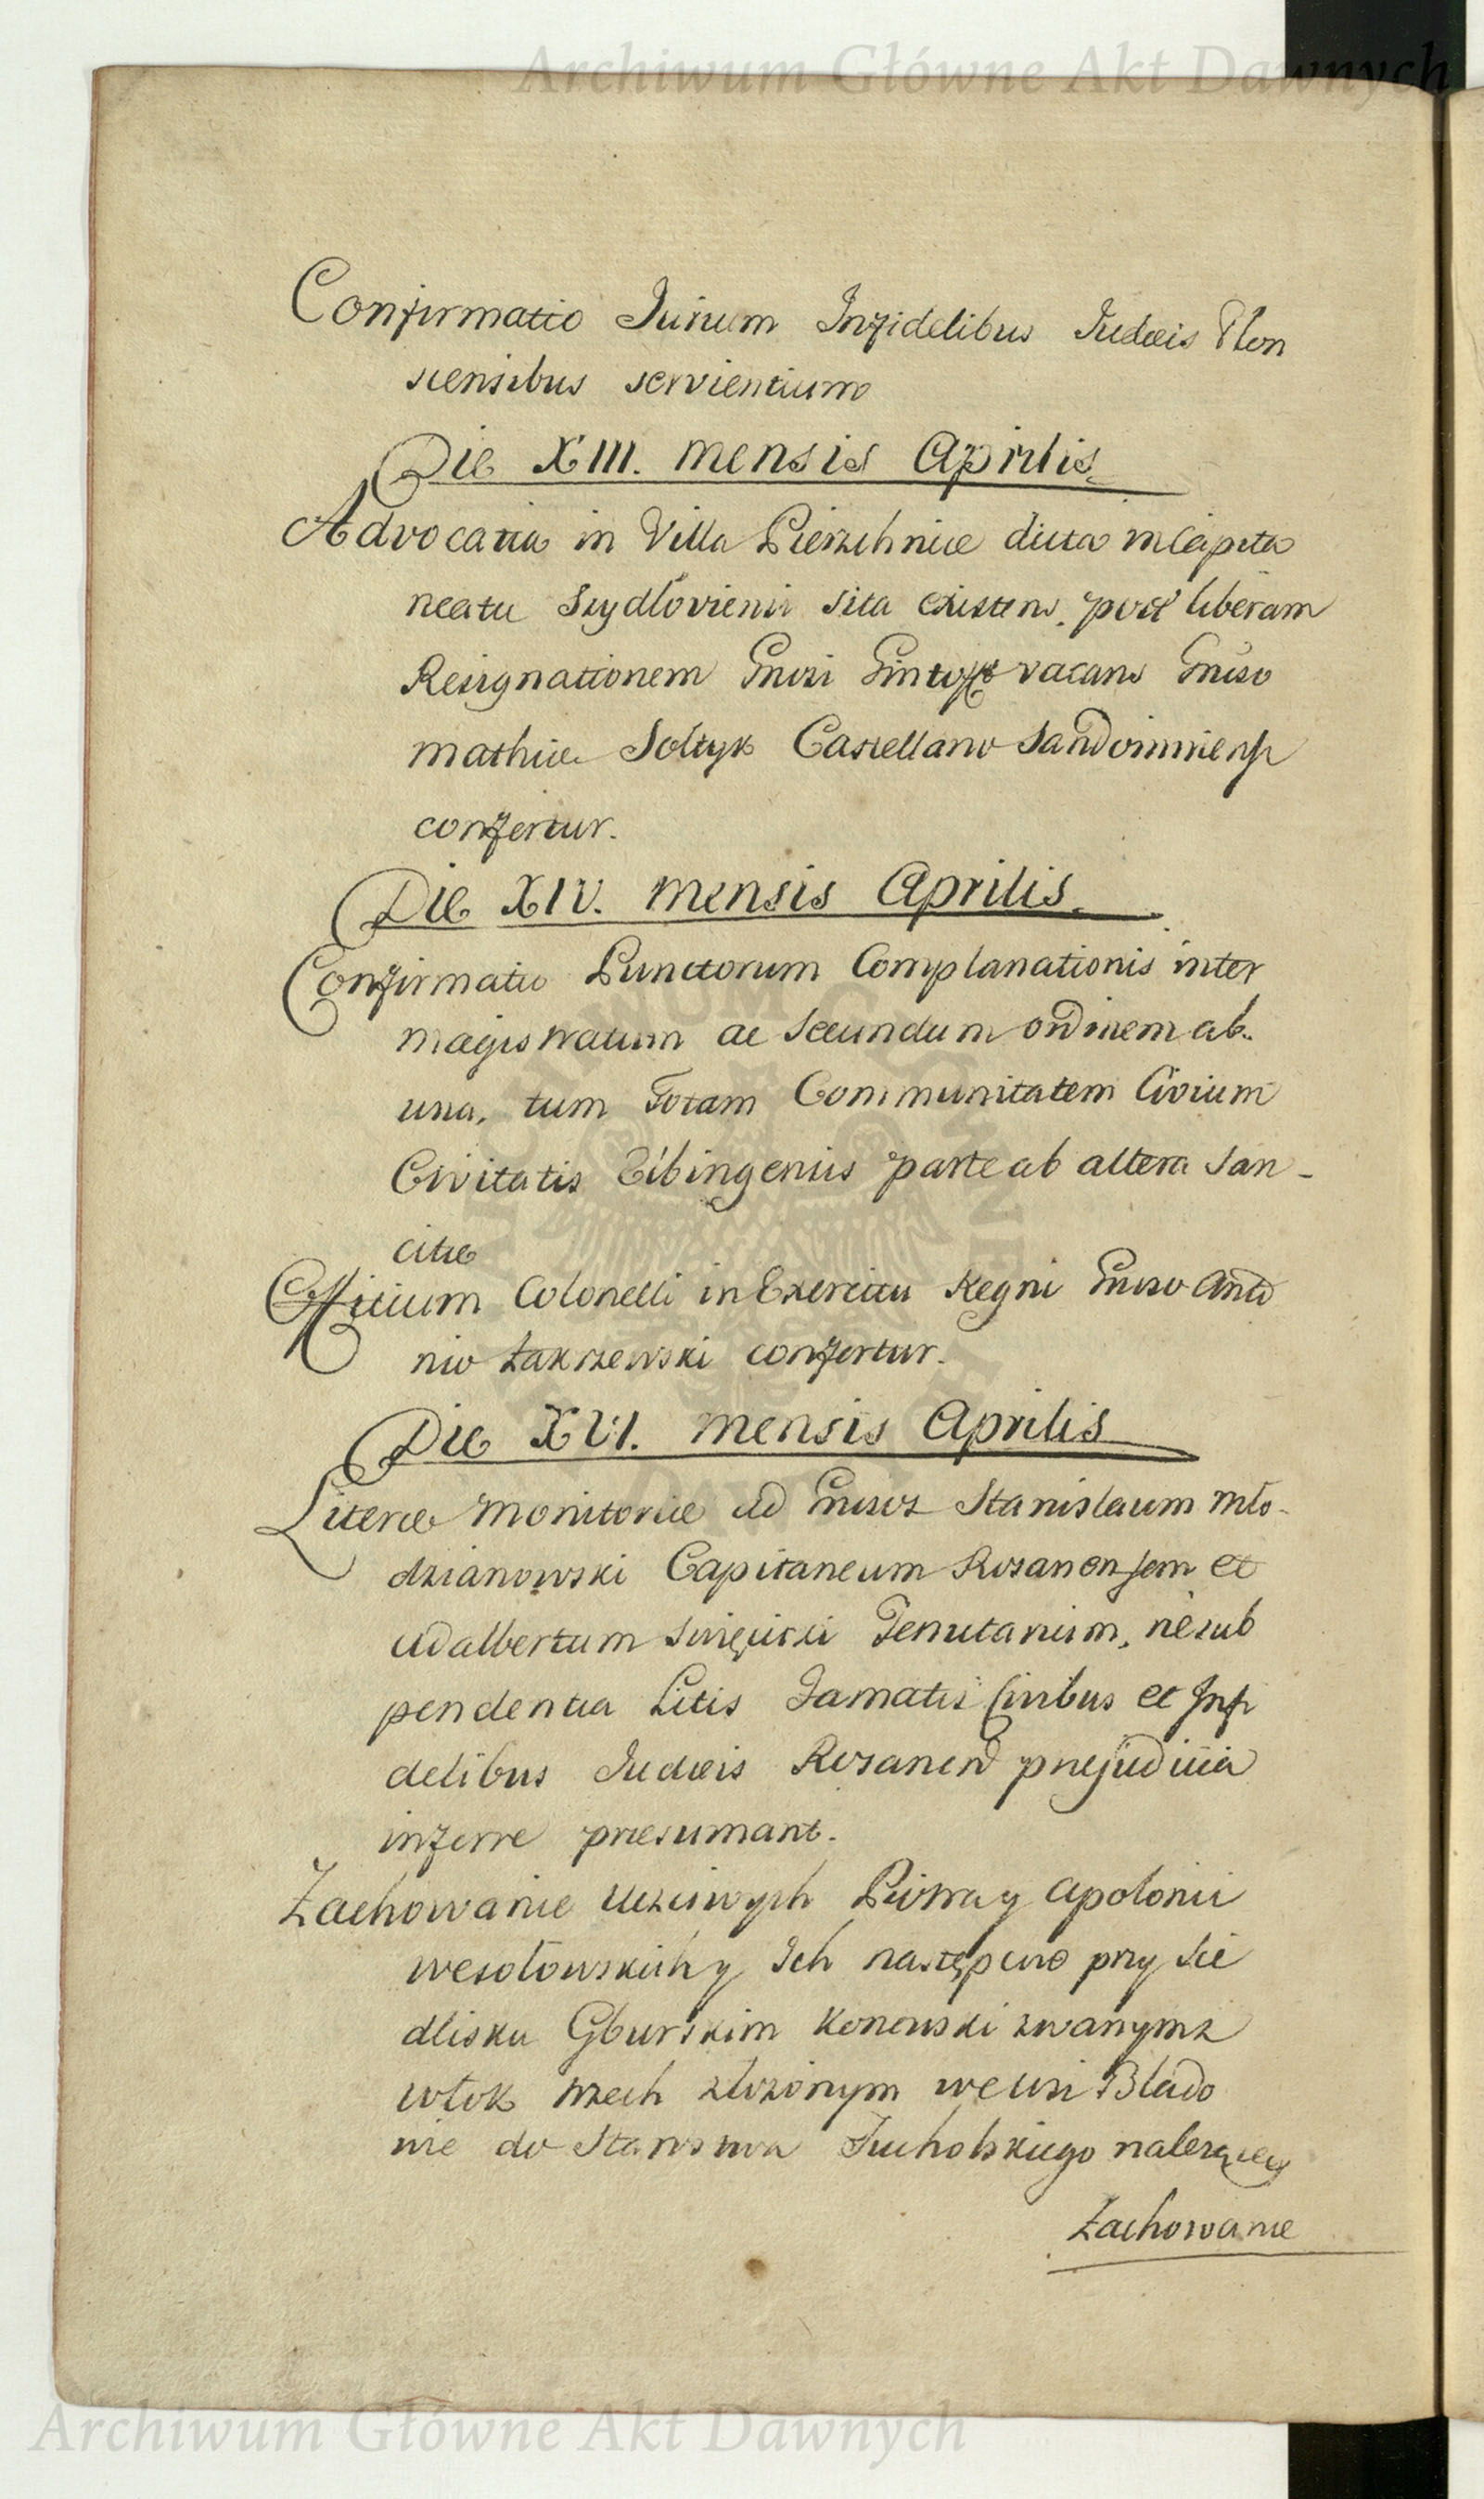 Archiwum Główne Akt Dawnych
Confirmatio Jurium Infidelibus Judæis Plon
scensibus servientium
Die XIII. mensis Aprilis.
Advocatia in Villa Pierzchnice dicta in Capita
neatu Szydłoviensi sita existens, post liberam
Resignationem Gnrsi vacans Gnrso
Mathiæ Soltyk Castellano Sandomiriensi
confertur.
Die XIV. mensis Aprilis.
Confirmatio Punctorum Complanationis inter
Magistratum ac Secundum ordinem ab
una, tum Totam Communitatem Civium
Civitatis Elbingensis parte ab altera San-
citæ
Officium Colonelli in Exercitu Regni Gnrso Anto
nio Zakrzewski confertur.
Die XVI. mensis Aprilis
Literæ Monitoriæ ad Gnrsos Stanislaum Mło-
dzianowski Capitaneum Rozanensem et
Adalbertum Swięcicki Tenutarium, ne sub
pendentia Litis Famatis Civibus et Infi
delibus Judæis Rozanen præjudicia
inferre præsumant.
Zachowanie Uczciwych Piotra y Apolonii
Wesołowskich y Ich następcow przy Sie
dlisku Gburskim zwanym z
włok trzech złożonym we wsi Blado
wie do Starostwa Tucholskiego należącey
Zachowanie
Archiwum Główne Akt Dawnych